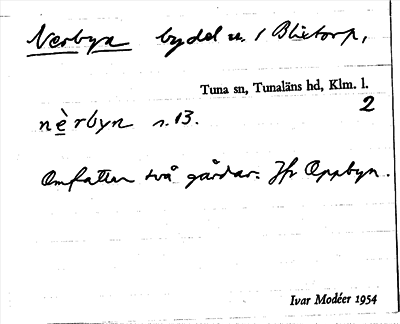 Nerbyn bydel u. / Blietorp,
Tuna sn, Tunaläns hd, Klm. l.
2
nè̱rbyn r. 13.
Omfattar två gårdar. Jfr Oppbyn.
Ivar Modéer 1954